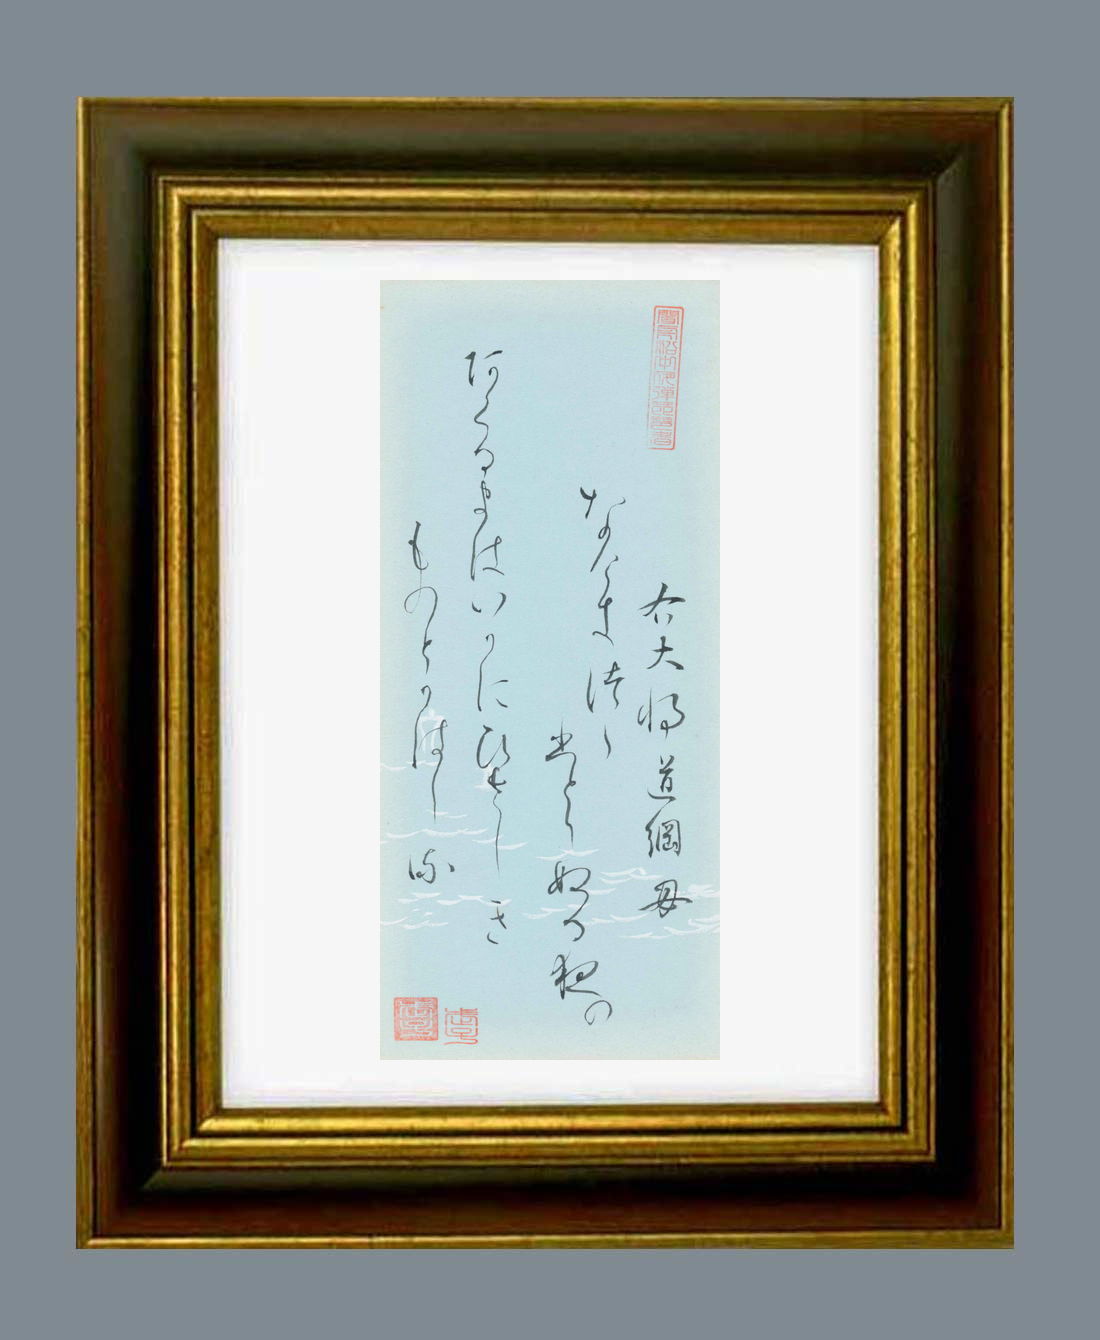 右大将道綱母
なげきつゝ
ひとりぬる夜の
あくるまはいかにひさしき
ものとかはしる